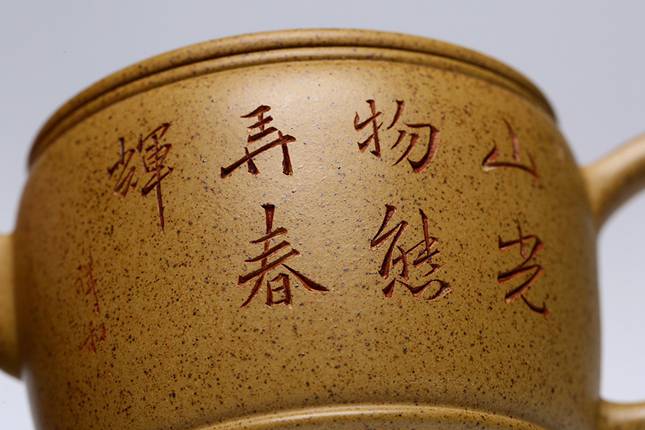 山光
物態
弄春
輝